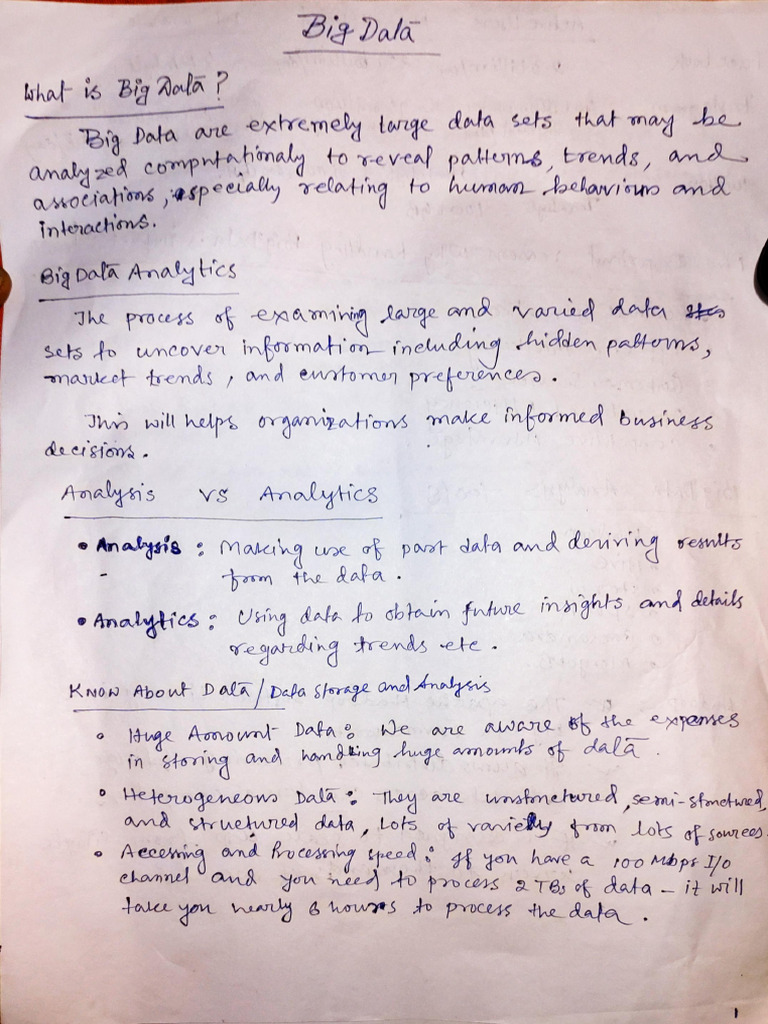 Big Data
What is Big Data?
Big Data are extremely large data sets that may be
analyzed computationaly to reveal patterns, trends, and
associations, especially relating to human behaviour and
interactions.
Big Data Analytics
The process of examining large and varied data
sets to uncover information including hidden patterns,
market trends, and customer preferences.
This will helps organizations make informed business
decisions.
Analysis vs Analytics
• Analysis: Making use of past data and deriving results
- from the data.
• Analytics: Using data to obtain future insights and details
regarding trends etc.
Know About Data/Data Storage and Analysis
• Huge Amount Data: We are aware of the expenses
in storing and handling huge amounts of data.
• Heterogeneous Data: They are unstructured, semi-structured,
and structured data, Lots of variety from lots of sources.
• Accessing and Processing speed: If you have a 100 Mbps I/O
channel and you need to process 2 TBs of data - it will
take you nearly 6 hours to process the data.
1